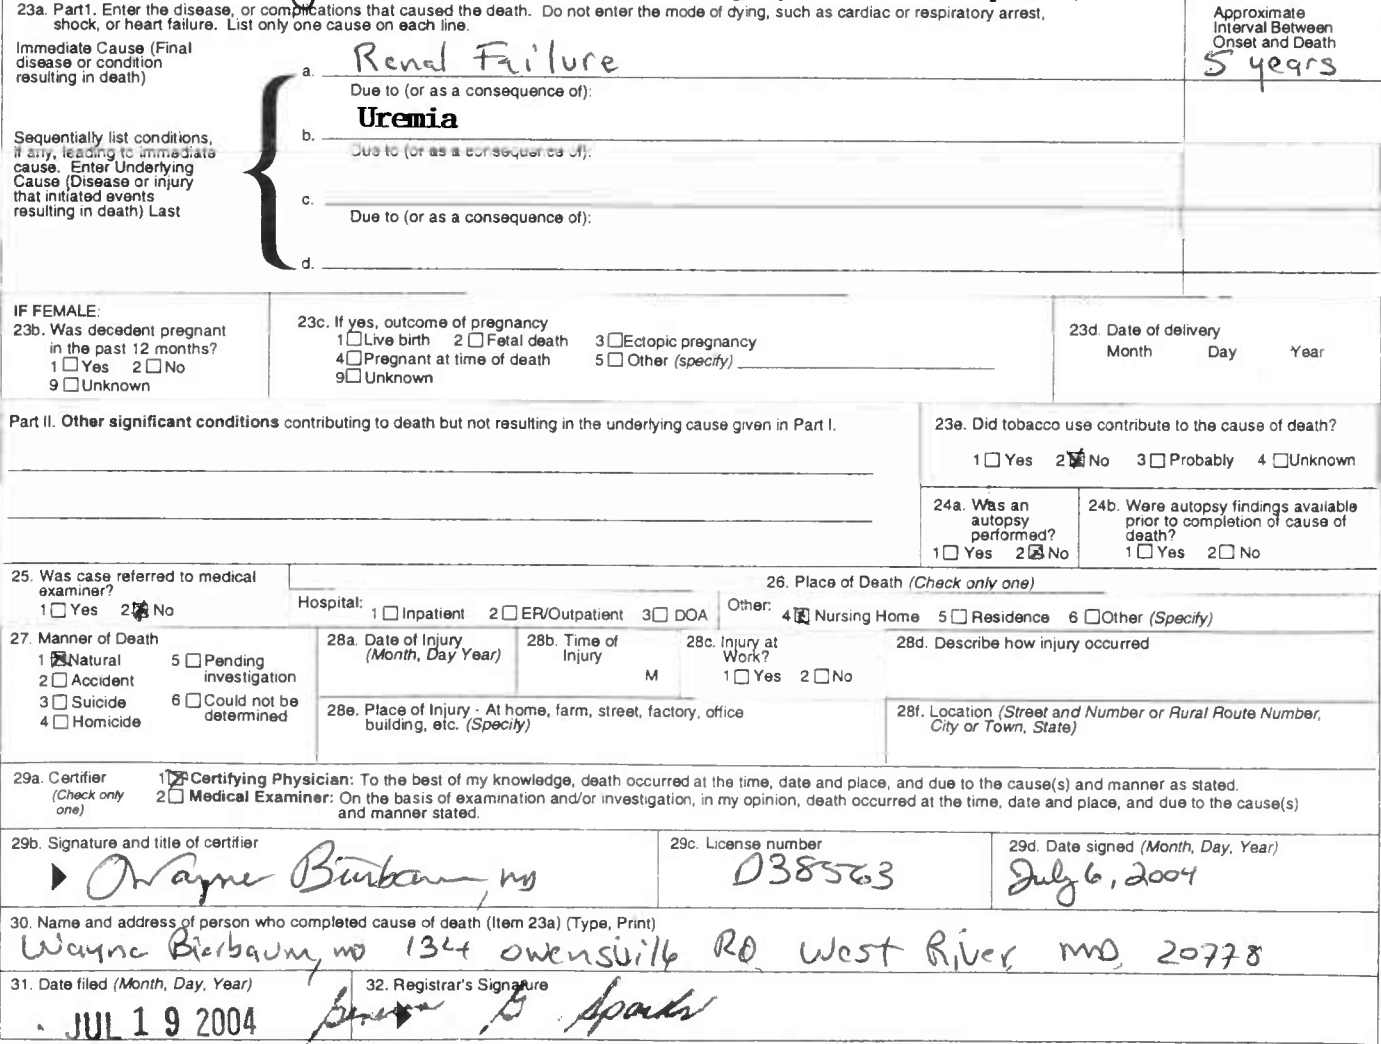 23a. Part1. Enter the disease, or complications that caused the death. Do not enter the mode of dying, such as cardiac or respiratory arrest,
shock, or heart failure. List only one cause on each line.
Approximate
Interval Between
Onset and Death
Immediate Cause (Final
disease or condition
resulting in death)
a. Renal Failure
5 years
Due to (or as a consequence of):
b. Uremia
Sequentially list conditions,
if any, leading to immediate
cause. Enter Underlying
Cause (Disease or injury
that initiated events
resulting in death) Last
Due to (or as a consequence of):
c.
Due to (or as a consequence of):
d.
IF FEMALE:
23b. Was decedent pregnant
in the past 12 months?
1 Yes 2 No
9 Unknown
23c. If yes, outcome of pregnancy
1 Live birth 2 Fetal death 3 Ectopic pregnancy
4 Pregnant at time of death 5 Other (specify)
9 Unknown
23d. Date of delivery
Month Day Year
Part II. Other significant conditions contributing to death but not resulting in the underlying cause given in Part I.
23e. Did tobacco use contribute to the cause of death?
1 Yes 2 No 3 Probably 4 Unknown
24a. Was an
autopsy
performed?
1 Yes 2 No
24b. Were autopsy findings available
prior to completion of cause of
death?
1 Yes 2 No
25. Was case referred to medical
examiner?
1 Yes 2 No
26. Place of Death (Check only one)
Hospital: 1 Inpatient 2 ER/Outpatient 3 DOA
Other: 4 Nursing Home 5 Residence 6 Other (Specify)
27. Manner of Death
1 Natural 5 Pending
investigation
2 Accident
3 Suicide 6 Could not be
determined
4 Homicide
28a. Date of Injury
(Month, Day Year)
28b. Time of
Injury
M
28c. Injury at
Work?
1 Yes 2 No
28d. Describe how injury occurred
28e. Place of Injury - At home, farm, street, factory, office
building, etc. (Specify)
28f. Location (Street and Number or Rural Route Number,
City or Town, State)
29a. Certifier
(Check only
one)
1 Certifying Physician: To the best of my knowledge, death occurred at the time, date and place, and due to the cause(s) and manner as stated.
2 Medical Examiner: On the basis of examination and/or investigation, in my opinion, death occurred at the time, date and place, and due to the cause(s)
and manner stated.
29b. Signature and title of certifier
Wayne Bierbaum, MD
29c. License number
29d. Date signed (Month, Day, Year)
July 6, 2004
30. Name and address of person who completed cause of death (Item 23a) (Type, Print)
Wayne Bierbaum, MD 134 Owensville RD West River, MD, 20778
31. Date filed (Month, Day, Year)
JUL 19 2004
32. Registrar's Signature
G. Sparks